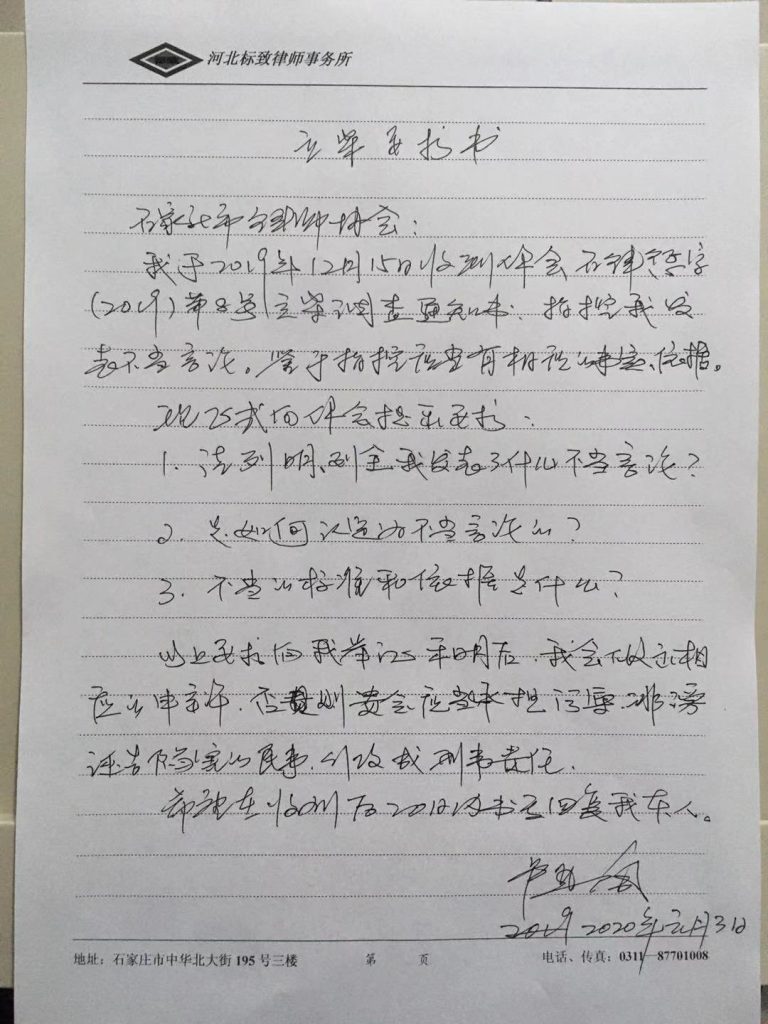 河北标致律师事务所
立案要求书
石家庄市律师协会：
我于2019年12月15日收到你会石律字
(2019)第8号立案调查通知书，指控我发
表不当言论。鉴于指控应当有相应的事实、依据。
现正式向你会提出要求：
1、请列明、列全我发表了什么不当言论？
2、是如何认定为不当言论的？
3、不当的标准和依据是什么？
以上要求向我举证证明后，我会做出相
应的申辩，否则贵会应当承担污辱、诽谤
诬告陷害的民事、行政或刑事责任。
希望在收到后20日内书面回复我本人。
2019 2020年元月3日
地址：石家庄市中华北大街195号三楼 第 页 电话、传真：0311—87701008